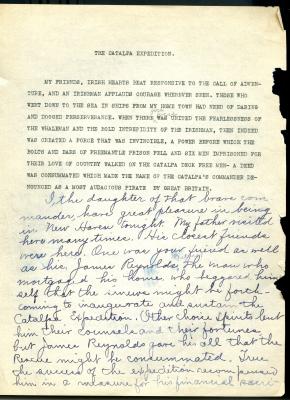 THE CATALPA EXPEDITION.
MY FRIENDS, IRISH HEARTS BEAT RESPONSIVE TO THE CALL OF ADVEN-
TURE, AND AN IRISHMAN APPLAUDS COURAGE WHEREVER SEEN. THOSE WHO
WENT DOWN TO THE SEA IN SHIPS FROM MY HOME TOWN HAD NEED OF DARING
AND DOGGED PERSEVERANCE. WHEN THERE WAS UNITED THE FEARLESSNESS OF
THE WHALEMAN AND THE BOLD INTREPIDITY OF THE IRISHMAN, THEN INDEED
WAS CREATED A FORCE THAT WAS INVINCIBLE, A POWER BEFORE WHICH THE
BOLTS AND BARS OF FREEMANTLE PRISON FELL AND SIX MEN IMPRISONED FOR
THEIR LOVE OF COUNTRY WALKED ON THE CATALPA DECK FREE MEN- A DEED
WAS CONSUMMATED WHICH MADE THE NAME OF THE CATALPA'S COMMANDER DE-
NOUNCED AS A MOST AUDACIOUS PIRATE BY GREAT BRITAIN.
I the daughter of that brave com
mander, have great pleasure in being
in New Haven tonight. My father visited
here many times. His closest friends
were here. One was your friend as well
as his, James Reynolds, the man who
mortgaged his home, who begged him
self that the sinews might be forth-
coming to inaugurate and sustain the
Catalpa Expedition. Other choice spirits lent
him their counsels and their fortunes
but James Reynolds gave his all that the
Rescue might be consummated. True
the success of the expedition recompensed
him in a measure for his financial sacri-